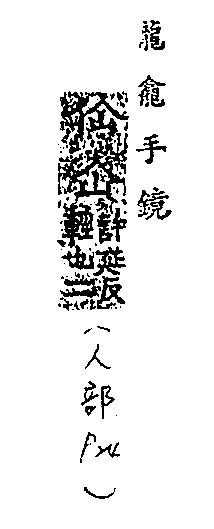 龍龕手鏡
許延反
輕也二
(人部 P24)